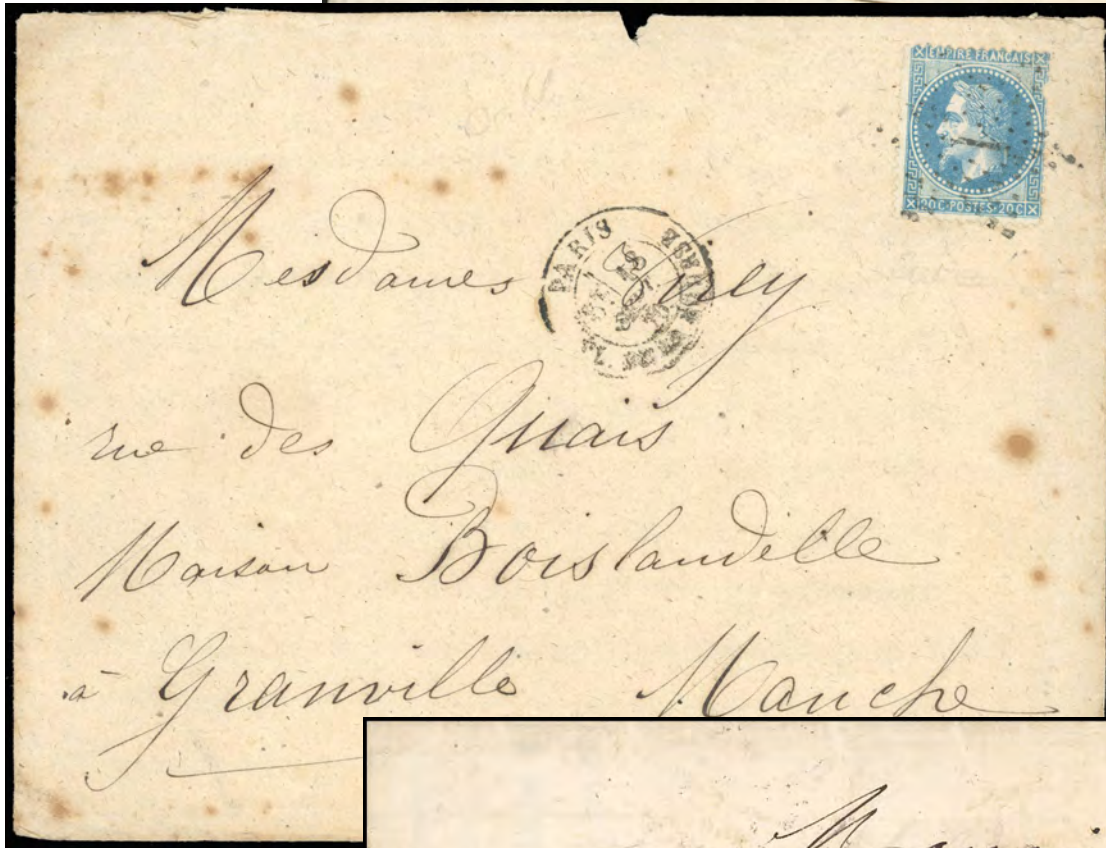 EMPIRE FRANÇAIS
20 C POSTES 20 C
1
PARIS
Mesdames
rue des Quais
Maison Boislandelle
à Granville Manche